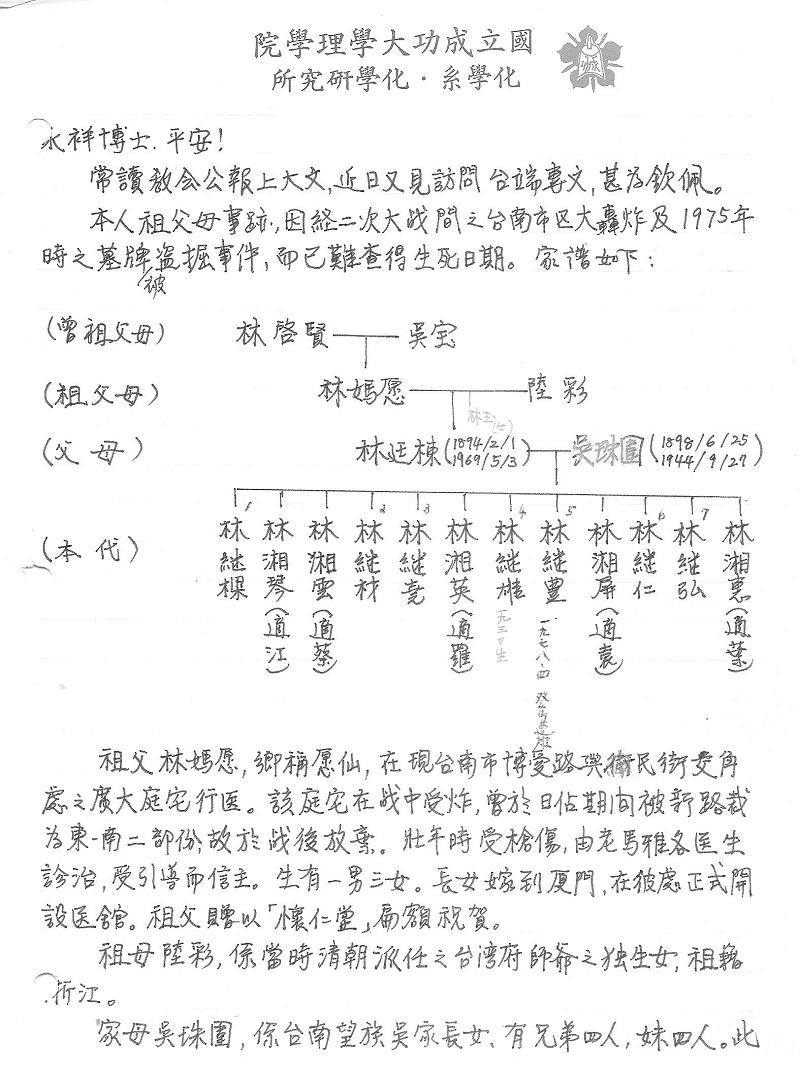 院學理學大功成立國
所究研學化·系學化
永祥博士.平安!
常讀教会公報上大文,近日又見訪問台端專文,甚為欽佩。
本人祖父母事跡,因経二次大战間之台南市区大轟炸及1975年
時之墓牌被盜掘事件,而已難查得生死日期。家譜如下:
(曾祖父母) 林啓賢 吳宝
(祖父母) 林媽愿 陸彩
林玉
(父母) 林廷棟(1894/2/1 1969/5/3) 吳珠園(1898/6/25 1944/9/27)
1 2 3 4 5 6 7
(本代)
林継樑
林湘琴(適江)
林湘雲(適蔡)
林継材
林継堯
林湘英(適羅)
林継雄
林継豐 一九七八.四
林湘屏(適袁)
林継仁
林継弘
林湘惠(適葉)
祖父林媽愿,鄉稱愿仙,在現台南市博愛路與衛民街交角
處之廣大庭宅行医。該庭宅在战中受炸,曾於日佔期间被新路裁
為東-南二部份,故於战後放棄。壯年時受槍傷,由老馬雅各医生
診治,受引導而信主。生有一男三女。長女嫁到厦門,在彼處正式開
設医舘。祖父贈以「懷仁堂」扁額祝賀。
祖母陸彩,係當時清朝派任之台湾府師爺之独生女,祖籍
.折江。
家母吳珠園,係台南望族吳家長女、有兄弟四人,妹四人。此